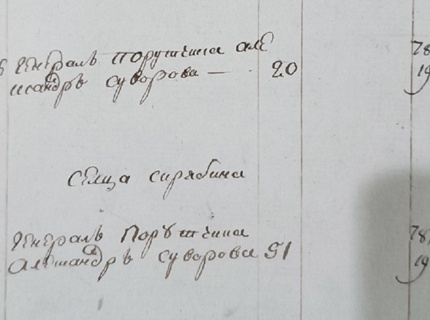 Генералъ порутчика але
ѯандръ суворова — 20
селца скрябина
Генералъ Порутчика
Алеѯандръ суворова 51
78
19
78
19